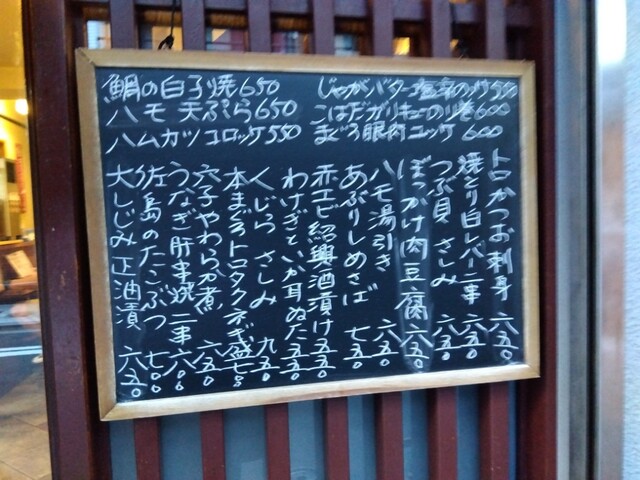 鯛の白子焼 650
ハモ天ぷら 650
ハムカツコロッケ 550
じゃがバター塩辛のっけ 550
こはだガリキューのり巻 600
まぐろ眼肉ユッケ 600
トロかつお刺身 六五〇
焼とり白レバー二串 六五〇
つぶ貝さしみ 六五〇
ぼっかけ肉豆腐 六五〇
ハモ湯引き 六五〇
あぶりしめさば 七五〇
赤エビ紹興酒漬け 五五〇
わけぎといか耳ぬた 五五〇
くじらさしみ 九五〇
本まぐろトロタクネギ盛 七八〇
穴子やわらか煮 六五〇
うなぎ肝串焼二串
佐島のたこぶつ 七〇〇
大しじみ正油漬 六五〇